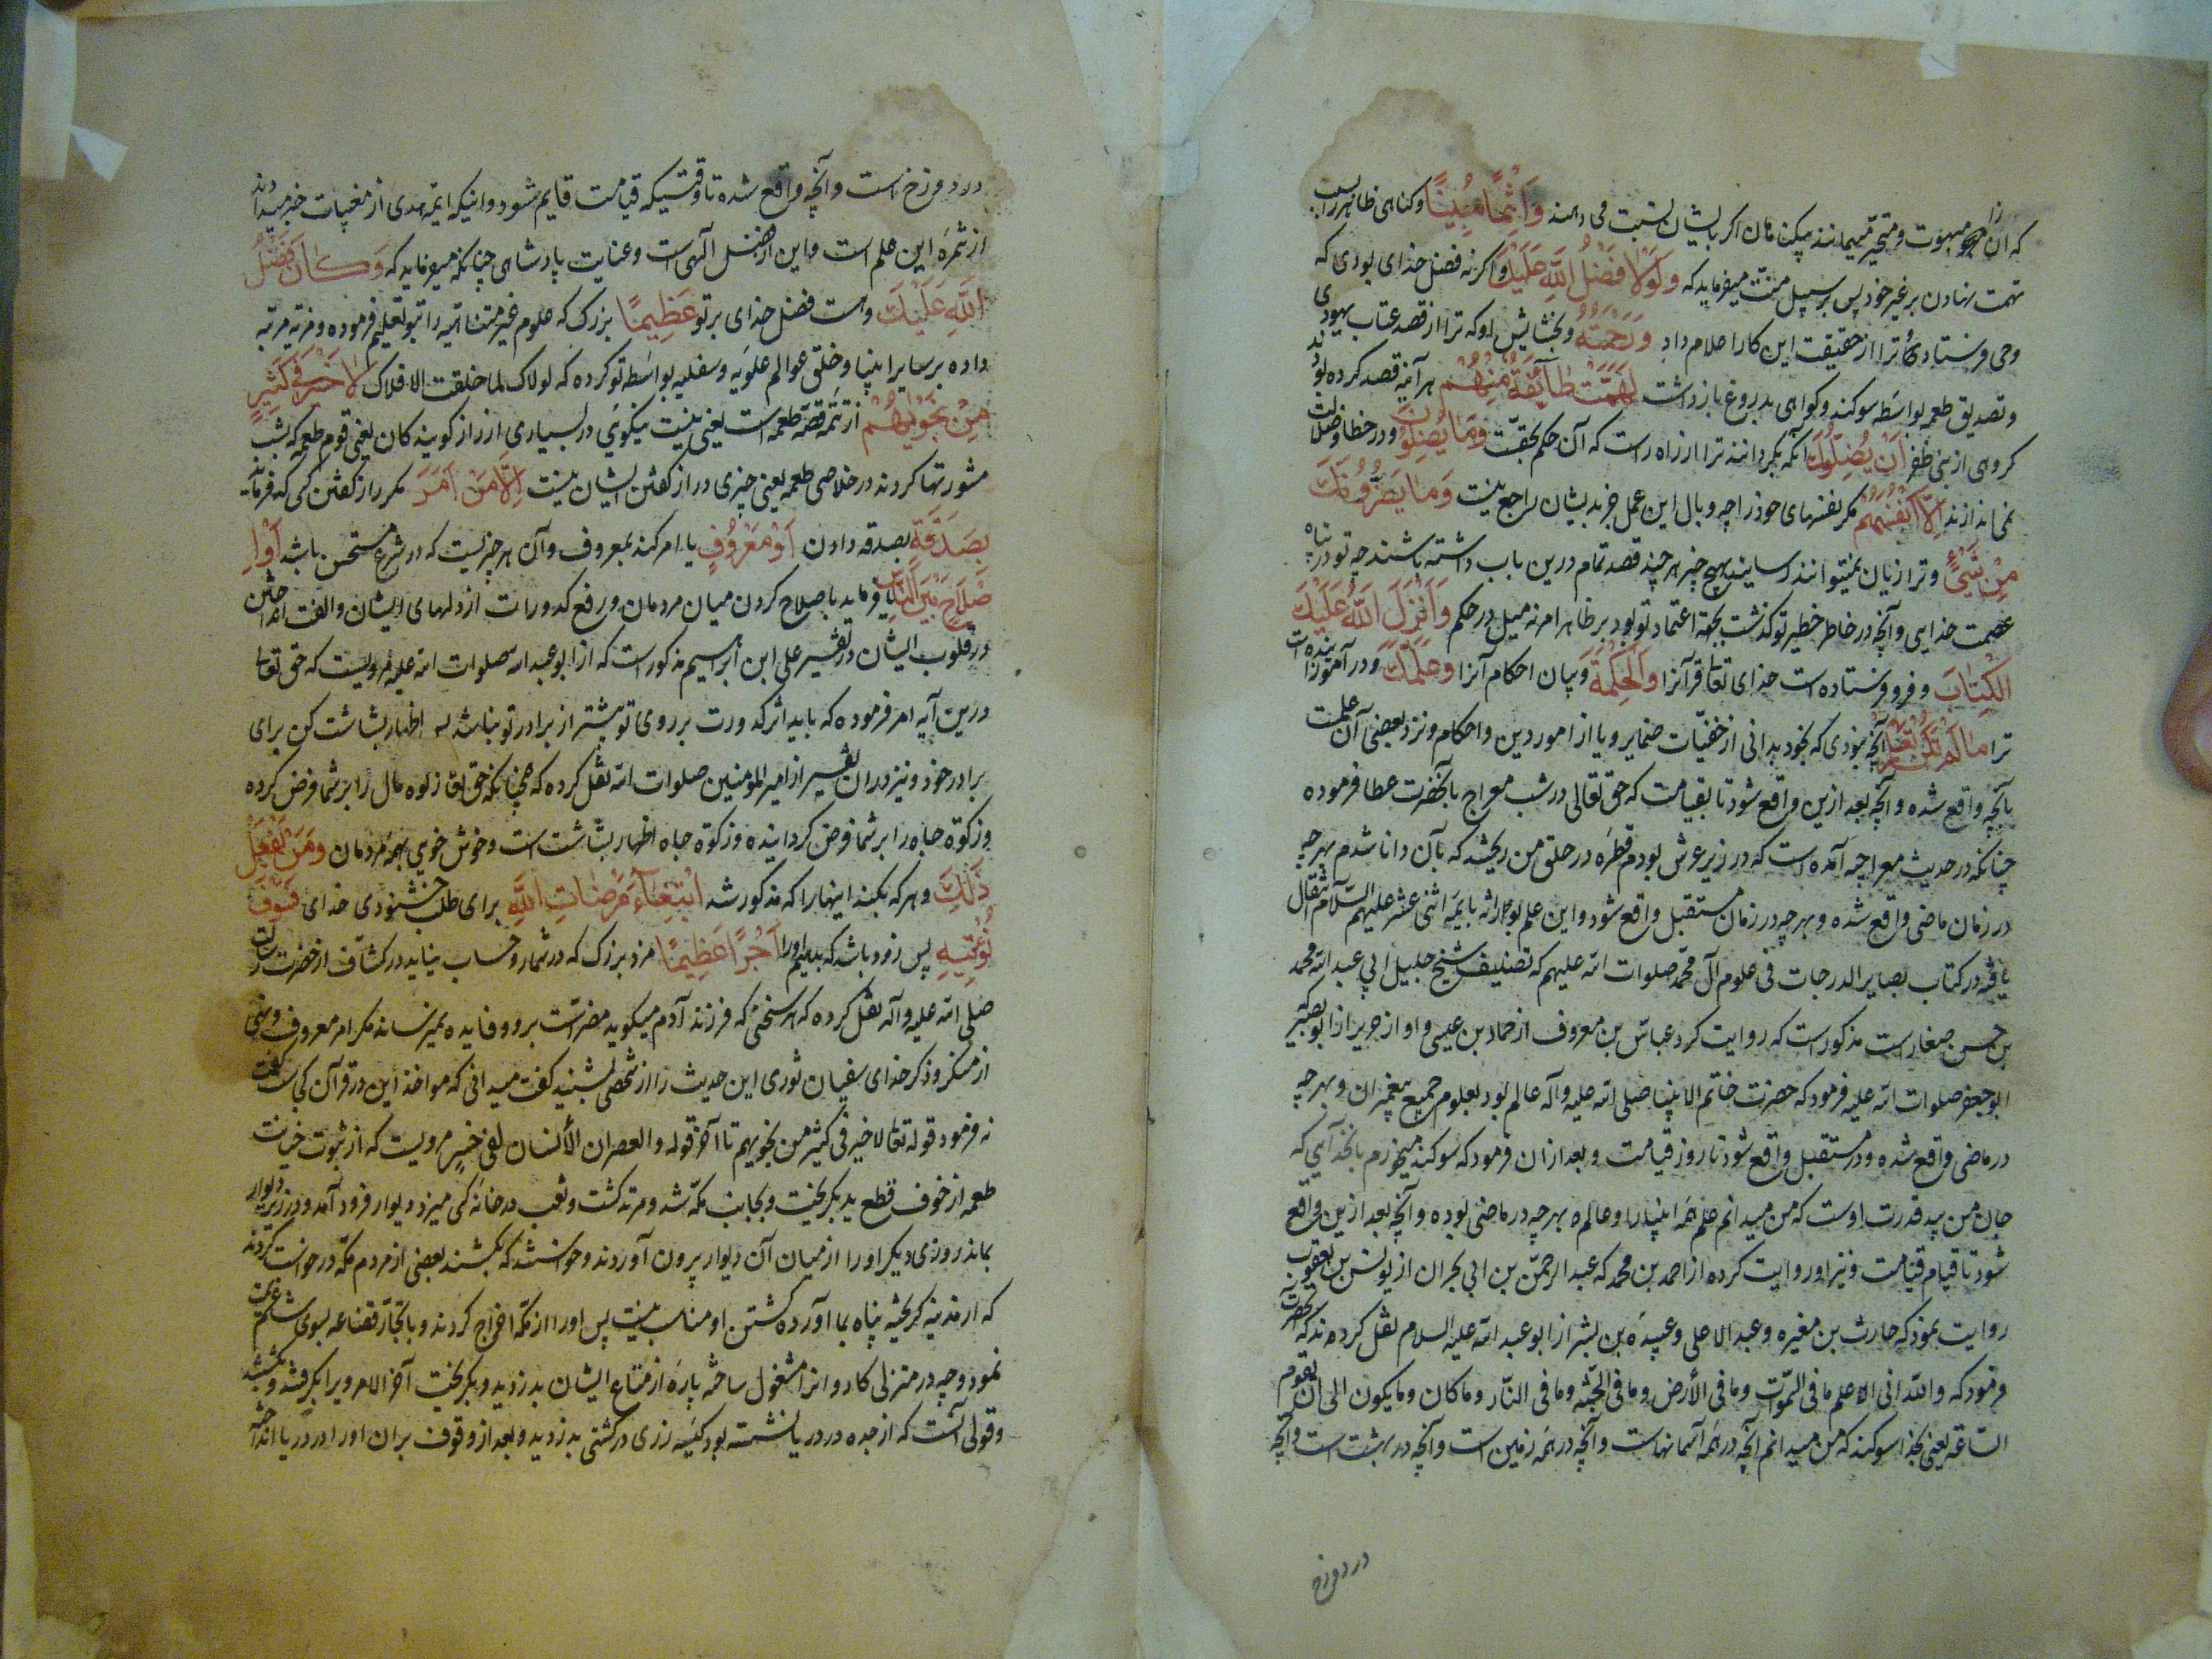 که آن مبهوت و متحیر میمانند بیکناهان اکر بایشان نسبت می دهند وَاِثْمًا مُبِینًا و کناهی ظاهر را بسبب
تهمت نهادن بر غیر خود پس بر سبیل منت میفرماید که وَلَوْلَا فَضْلُ اللّٰهِ عَلَیْكَ و اکر نه فضل خدای بودی که
وحی فرستادی و ترا از حقیقت این کار اعلام داد وَرَحْمَتُهُ و بخشایش او که ترا از قصد عتاب یهودی
و تصدیق طعمه بواسطه سوکند و کواهی بدروغ بازداشت لَهَمَّتْ طَآئِفَةٌ مِنْهُمْ هر آینه قصد کرده بودند
کروهی از بنی ظفر اَنْ یُضِلُّوكَ آنکه بکردانند ترا از راه راست که آن حکم بحقست وَمَا یُضِلُّونَ و در خطا و ضلالت
نمی اندازند اِلَّا اَنْفُسَهُمْ مکر نفسهای خود را چه وبال این عمل جز بدیشان راجع نیست وَمَا یَضُرُّونَكَ
مِنْ شَیْءٍ و ترا زیان نمیتوانند رسانید بهیچ چیز هر چند قصد تمام درین باب داشته باشند چه تو در پناه
عصمت خدایی و آنچه در خاطر خطیر تو کذشت بجهة اعتماد تو بود بر ظاهر امر نه میل در حکم وَاَنْزَلَ اللّٰهُ عَلَیْكَ
الْکِتَابَ و فرو فرستاده است خدای تعالی قرآنرا وَالْحِکْمَةَ و بیان احکام آنرا وَعَلَّمَكَ و در آموزانیده است
ترا مَا لَمْ تَکُنْ تَعْلَمُ آنچه نبودی که بخود بدانی از خفیّات ضمایر و یا از امور دین و احکام و نزد بعضی آن علمست
بآنچه واقع شده و آنچه بعد ازین واقع شود تا بقیامت که حق تعالی در شب معراج بآنحضرت عطا فرموده
چنانکه در حدیث معراجیه آمده است که در زیر عرش بودم قطره در حلق من ریختند که بآن دانا شدم بهر چه
در زمان ماضی واقع شده و بهر چه در زمان مستقبل واقع شود و این علم بوراثه بایمه اثنی عشر علیهم السّلام انتقال
یافته در کتاب بصایر الدرجات فی علوم آل محمد صلوات الله علیهم که تصنیف شیخ جلیل ابی عبد الله محمد
بن حسن صفار است مذکور است که روایت کرد عباس بن معروف از حماد بن عیسی و او از حریز از ابو بصیر
ابو جعفر صلوات الله علیه فرمود که حضرت خاتم الانبیا صلی الله علیه و آله عالم بود بعلوم جمیع پیغمبران و بهر چه
در ماضی واقع شده و در مستقبل واقع شود تا روز قیامت و بعد ازان فرمود که سوکند میخورم بانخدایی که
جان من بید قدرت اوست که من میدانم علم همه انبیا را و عالم بهر چه در ماضی بوده و آنچه بعد ازین واقع
شود تا قیام قیامت و نیز او روایت کرده از احمد بن محمد که عبد الرحمن بن ابی نجران از یونس بن یعقوب
روایت نمود که حارث بن مغیره و عبد الاعلی و عبیده بن بشر از ابو عبد الله علیه السلام نقل کرده اند که آنحضرت
فرمود که والله انی لاعلم ما فی السّموات وما فی الأرض وما فی الجنّه وما فی النّار وما کان وما یکون الی ان تقوم
السّاعه یعنی بخدا سوکند که من میدانم آنچه در همه آسمانهاست و آنچه در همه زمین است و آنچه در بهشت است و آنچه
در دوزخ
در دوزخ است و آنچه واقع شده تا وقتیکه قیامت قایم شود و اینکه ایمه هدی از مغیبات خبر میدادند
از ثمره این علم است و این از فضل الهی است و عنایت پادشاهی چنانکه میفرماید که وَکَانَ فَضْلُ
اللّٰهِ عَلَیْكَ و هست فضل خدای بر تو عَظِیمًا بزرک که علوم غیر متناهیه را بتو تعلیم فرموده و مزیة مرتبه
داده بر سایر انبیا و خلق عوالم علویه و سفلیه بواسطه تو کرده که لولاک لما خلقت الافلاک لَا خَیْرَ فِی کَثِیرٍ
مِنْ نَجْوٰیهُمْ از تتمه قصه طعمه است یعنی نیست نیکویی در بسیاری از راز کویند کان یعنی قوم طعمه که بشب
مشورتها کردند در خلاصی طعمه یعنی چیزی در راز کفتن ایشان نیست اِلَّا مَنْ اَمَرَ مکر راز کفتن کسی که فرماید
بِصَدَقَةٍ بصدقه دادن اَوْ مَعْرُوفٍ یا امر کند بمعروف و آن هر چیزیست که در شرع مستحسن باشد اَوْ اِ
صْلَاحٍ بَیْنَ النَّاسِ یا فرماید باصلاح کردن میان مردمان و رفع کدورات از دلهای ایشان و الفت انداختن
در قلوب ایشان در تفسیر علی ابن ابراهیم مذکور است که از ابو عبد الله صلوات الله علیه مرویست که حق تعالی
درین آیه امر فرموده که باید اثر کدورت بر روی تو بیشتر از برادر تو نباشد اظهار بشاشت کن برای
برادر خود و نیز دران تفسیر از امیر المومنین صلوات الله نقل کرده که همچنانکه حق تعالی زکوه مال را بر شما فرض کرده
و زکوة جاه را بر شما فرض کردانیده و زکوة جاه اظهار بشاشت است و خوش خویی بهمه مردمان وَمَنْ یَفْعَلْ
ذٰلِكَ و هر که بکند اینها را که مذکور شد اِبْتِغَآءَ مَرْضَاتِ اللّٰهِ برای طلب خشنودی خدای فَسَوْفَ
نُؤْتِیهِ پس زود باشد که بدهیم او را اَجْرًا عَظِیمًا مزد بزرک که در شمار و حساب نیاید در کشاف از حضرت رسالت
صلی الله علیه و آله نقل کرده که هر سخنی که فرزند آدم میکوید مضر است برو و فایده نمیرساند مکر امر معروف و نهی
از منکر و ذکر خدای سفیان ثوری این حدیث را از شخصی بشنید کفت میدانی که مواخذ این در قرآن کجاست کفت
نه فرمود قوله تعالی لا خیر فی کثیر من نجویهم تا آخر قوله والعصر ان الأنسان لفی خسر مرویست که از ثبوت خیانت
طعمه از خوف قطع ید بکریخت و بجانب مکه شد و مرتد کشت و شب در خانه کسی میزد دیوار فرود آمد و در زیر دیوار
بماند روزی دیکر او را از میان آن دیوار بیرون آوردند و خواستند که بکشند بعضی از مردم مکه درخواست کردند
که از مدینه کریخته پناه بما آورده کشتن او مناسب نیست پس او را از مکه اخراج کردند و با تجار قضاعه بسوی شام عزیمت
نمود و چه در منزلی کاروانرا مشغول ساخته پاره از متاع ایشان بدزدید و بکریخت آخر الامر ویرا بکرفتند و بکشتند
و قولی آنست که از جده در دریا نشسته بود کیسه زری در کشتی بدزدید و بعد از وقوف بران او را در دریا انداختند